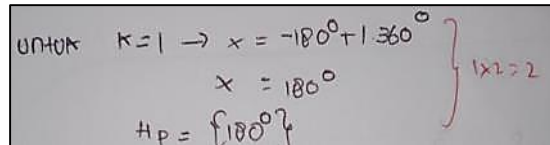 untuk k=1 → x = -180° + 1.360°
x = 180°
Hp = {180°}
1x2=2